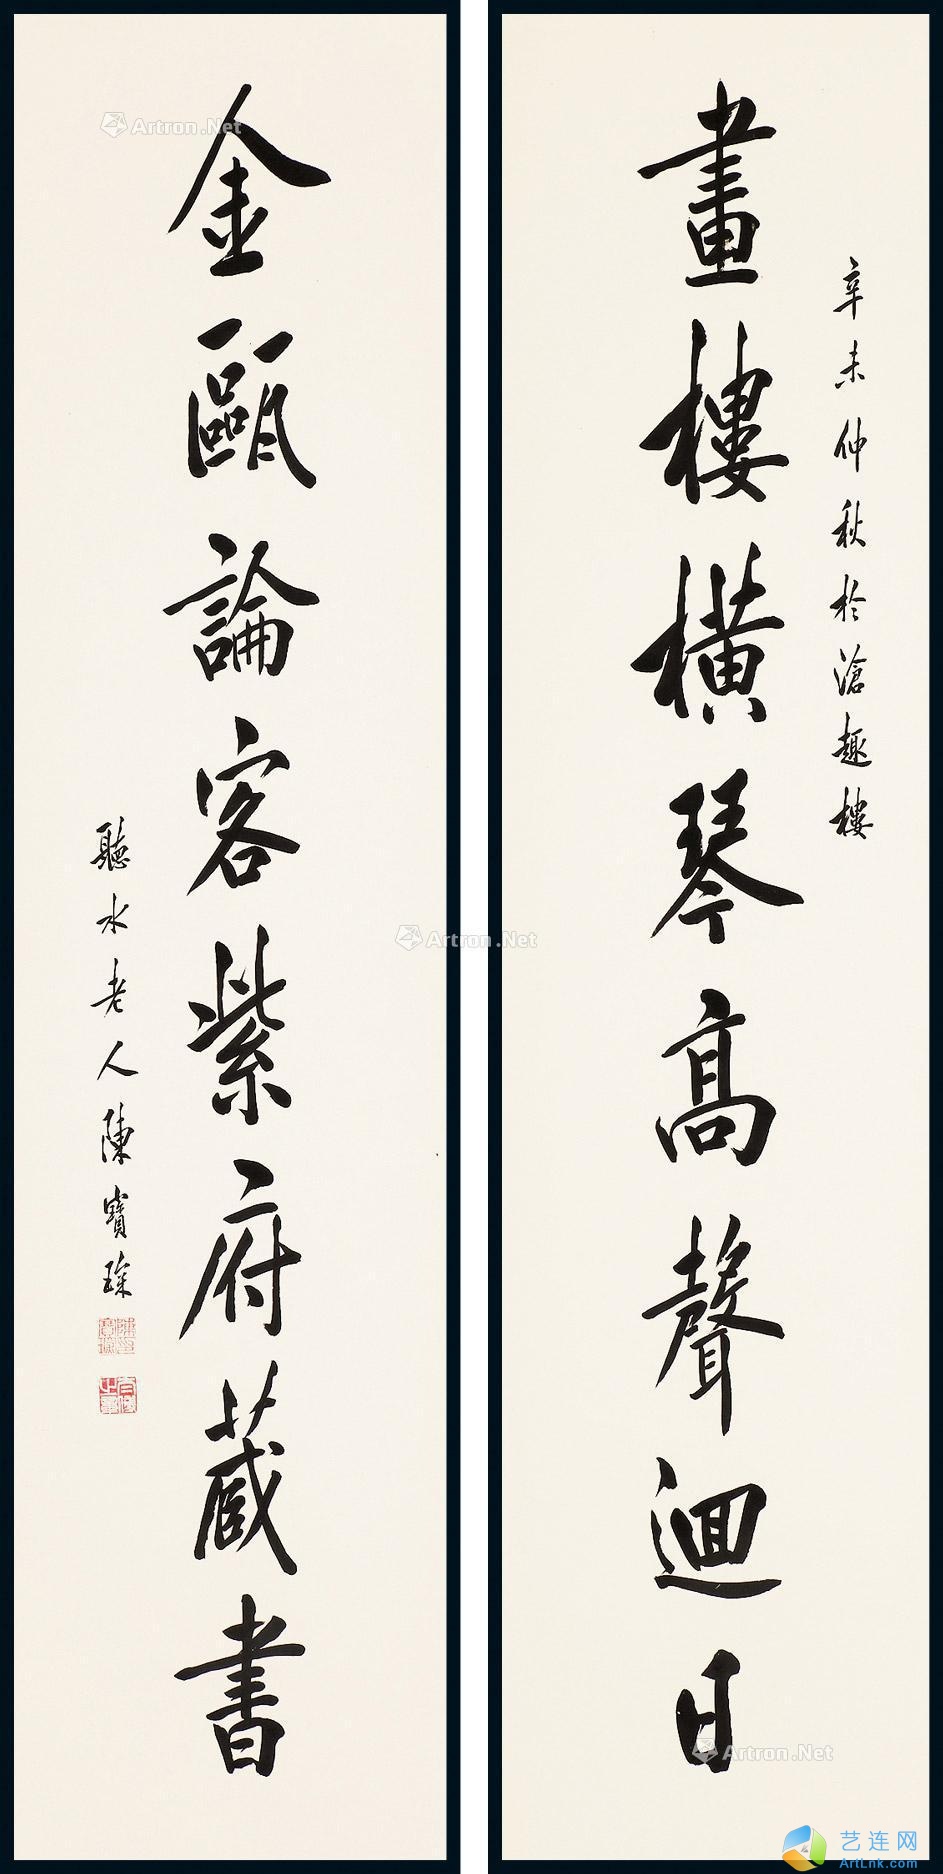 辛未仲秋於滄趣樓
畫樓橫琴高聲迴日
金甌論客紫府蔵書
聽水老人陳寶琛
Artron.Net
Artron.Net
Artron.Net
艺连网
ArtLnk.com